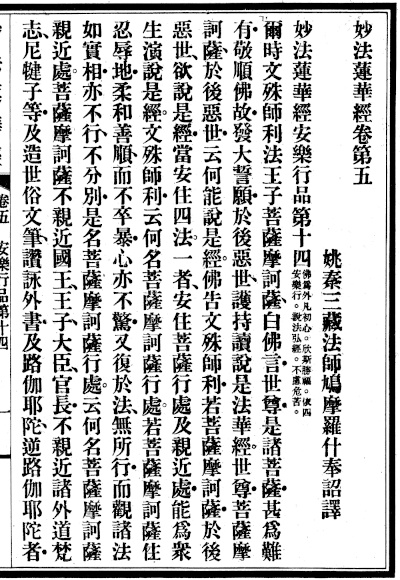 妙法蓮華經卷第五
姚秦三藏法師鳩摩羅什奉詔譯
妙法蓮華經安樂行品第十四
佛爲外凡初心。欣斯勝福。復四
安樂行。說法弘經。不慮危苦。
爾時文殊師利法王子菩薩摩訶薩白佛言世尊是諸菩薩甚爲難
有敬順佛故發大誓願於後惡世護持讀說是法華經世尊菩薩摩
訶薩於後惡世云何能說是經。佛告文殊師利若菩薩摩訶薩於後
惡世欲說是經當安住四法一者、安住菩薩行處及親近處能爲衆
生演說是經。文殊師利、云何名菩薩摩訶薩行處。若菩薩摩訶薩住
忍辱地柔和善順而不卒暴心亦不驚又復於法、無所行而觀諸法
如實相亦不行、不分別是名菩薩摩訶薩行處。云何名菩薩摩訶薩
親近處。菩薩摩訶薩不親近國王、王子、大臣、官長不親近諸外道梵
志尼犍子等及造世俗文筆讚詠外書及路伽耶陀、逆路伽耶陀者
卷五 安樂行品第十四